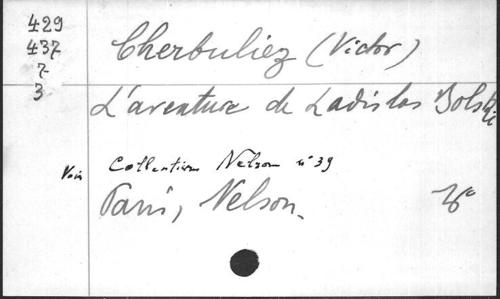 429
437
2
3
Cherbuliez (Victor)
L'aventure de Ladislas Bolski
Voir Collection Nelson n° 39
Paris, Nelson.